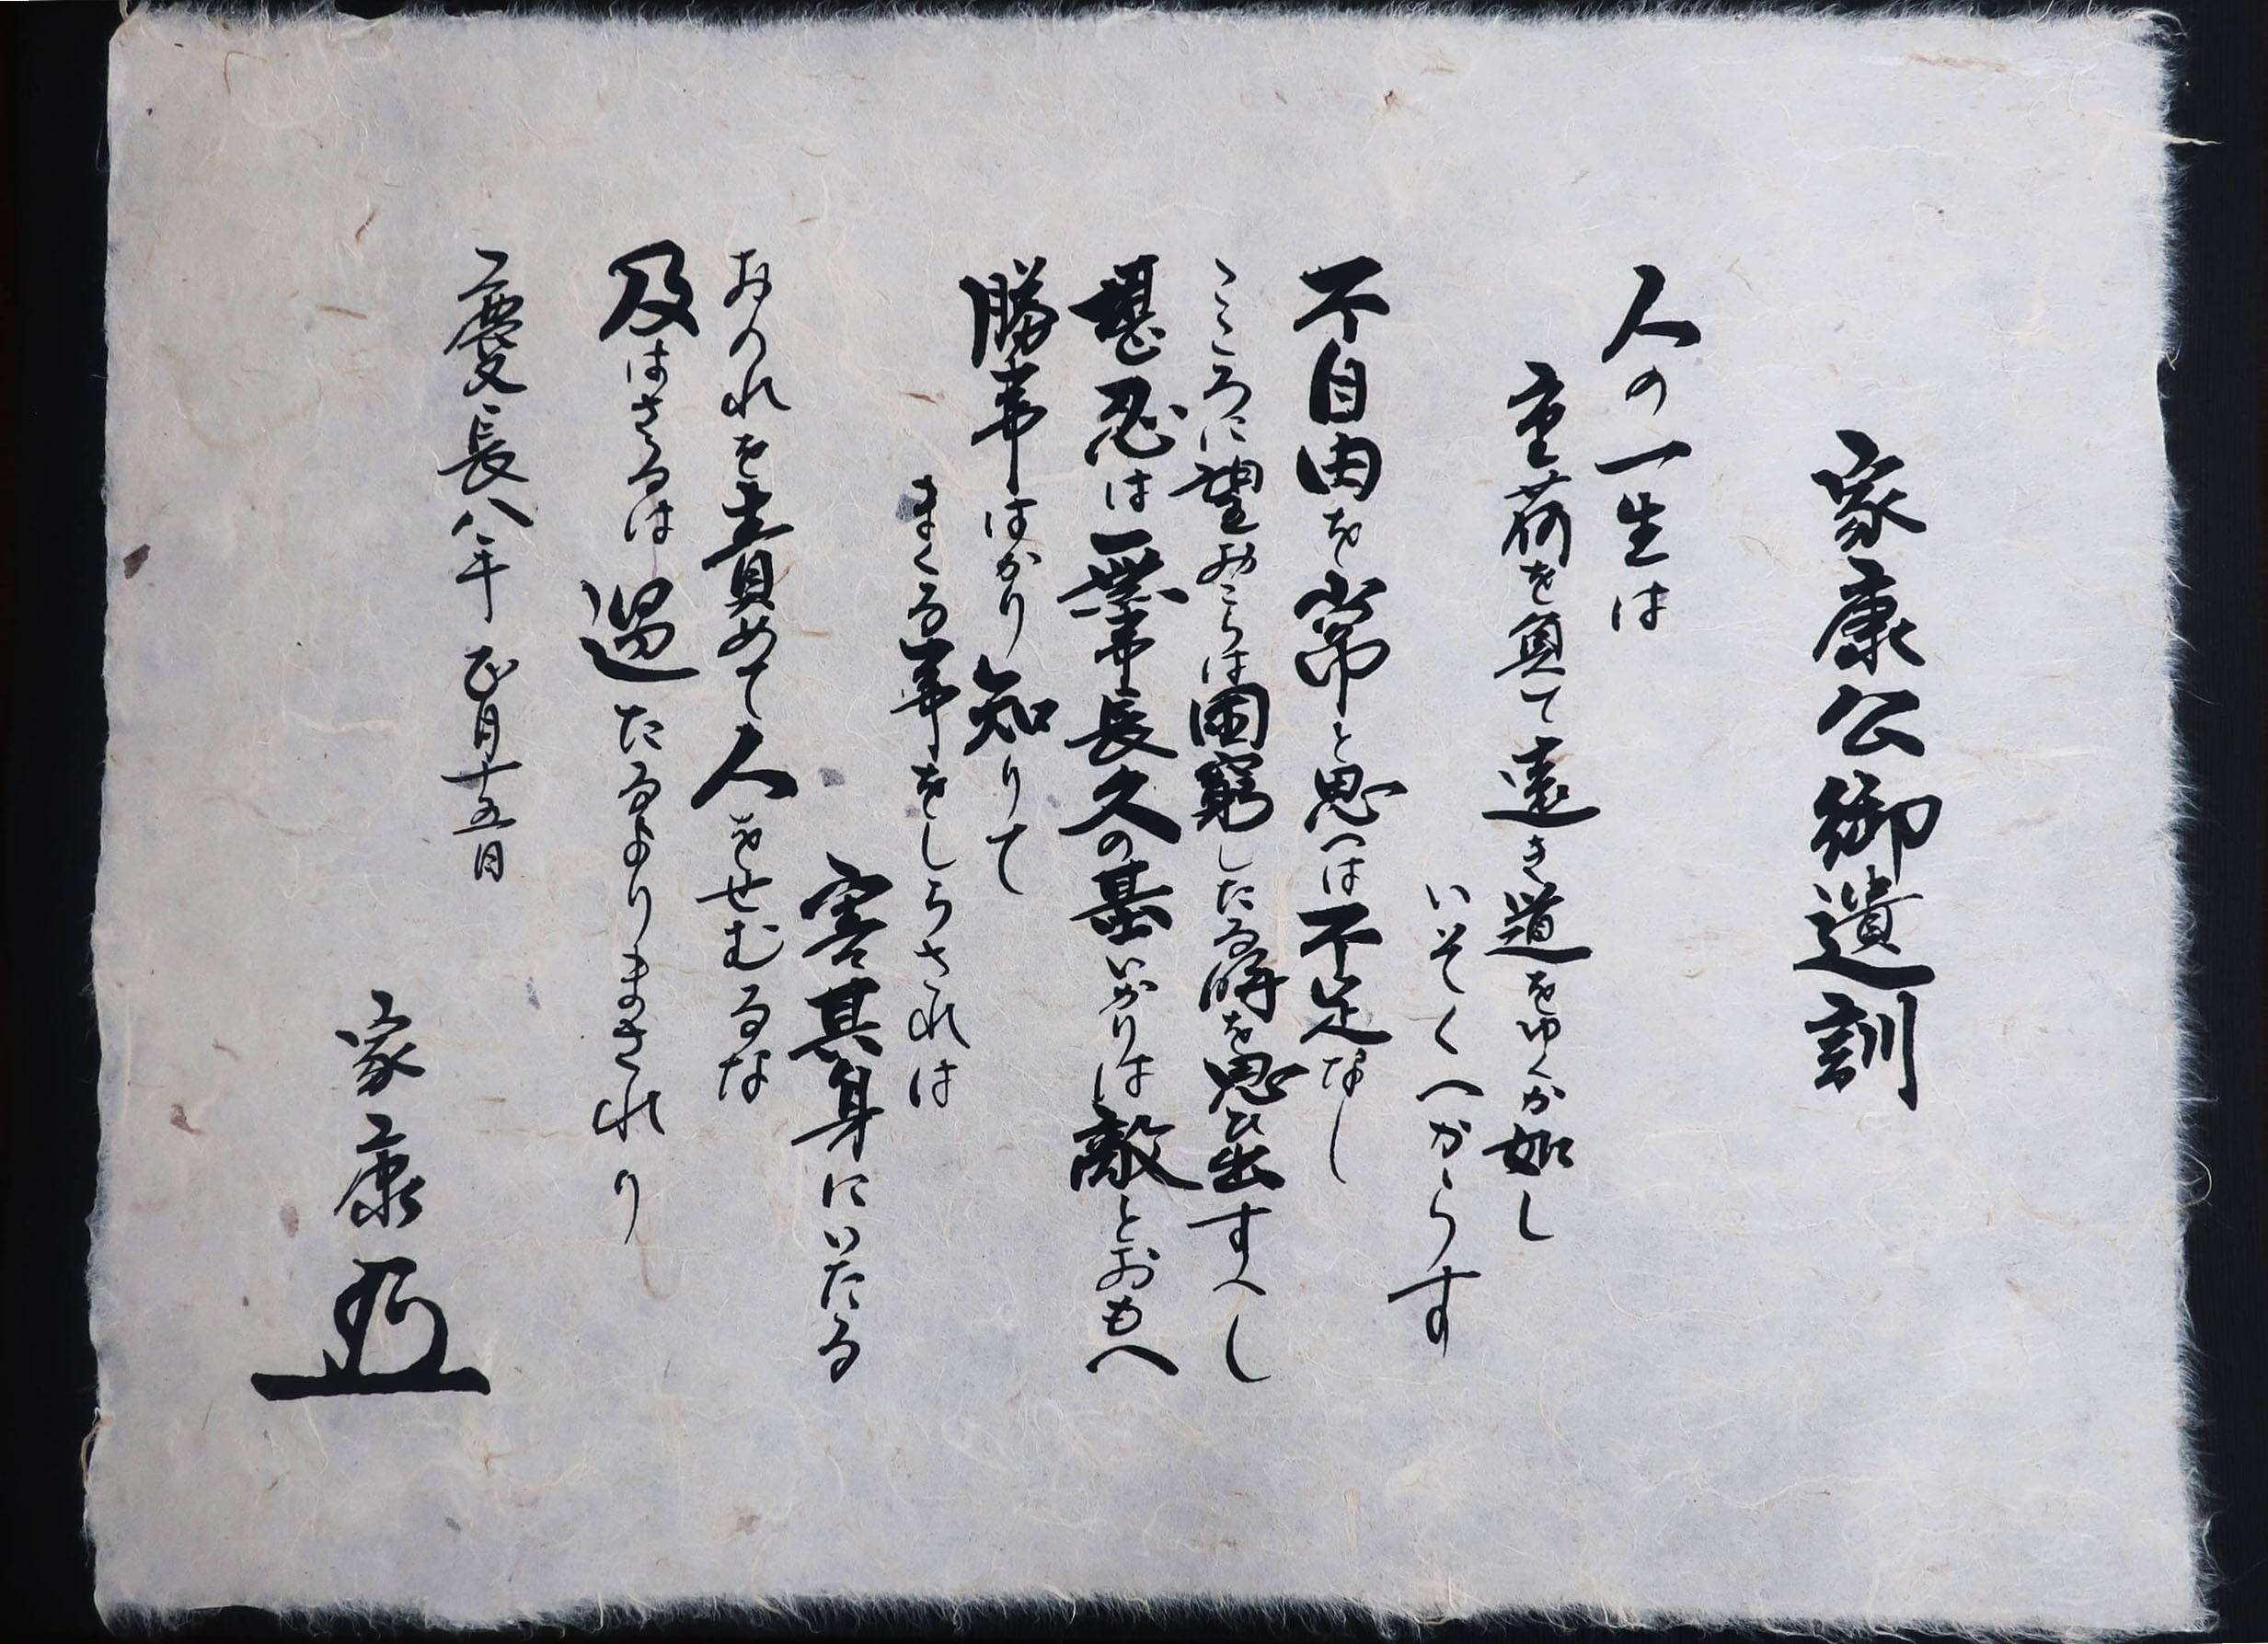 家康公御遺訓
人の一生は
重荷を負て遠き道をゆくか如し
いそくへからす
不自由を常と思へは不足なし
こころに望おこらは困窮したる時を思ひ出すへし
堪忍は無事長久の基いかりは敵とおもへ
勝事はかり知りて
まくる事をしらされは
害其身にいたる
おのれを責めて人をせむるな
及はさるは過たるよりまされり
慶長八年正月十五日
家康